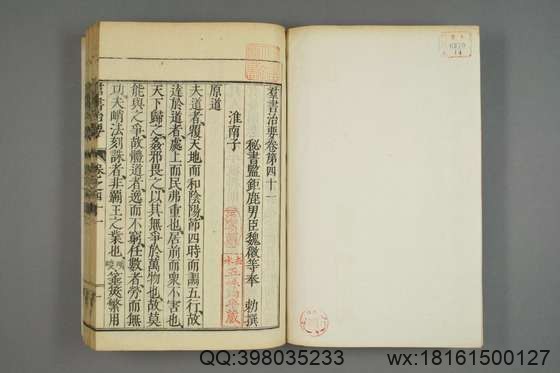 羣書治要卷第四十一
秘書監鉅鹿男臣魏徵等奉 勅撰
淮南子
原道
夫道者覆天地而和陰陽節四時而調五行故
達於道者處上而民弗重也居前而衆不害也
天下歸之姦邪畏之以其無爭於萬物也故莫
能與之爭故體道者逸而不窮任數者勞而無
功夫峭法刻誅者非霸王之業也箠策繁用
羣書治要 卷之四十一
QQ:398035233
wx:18161500127